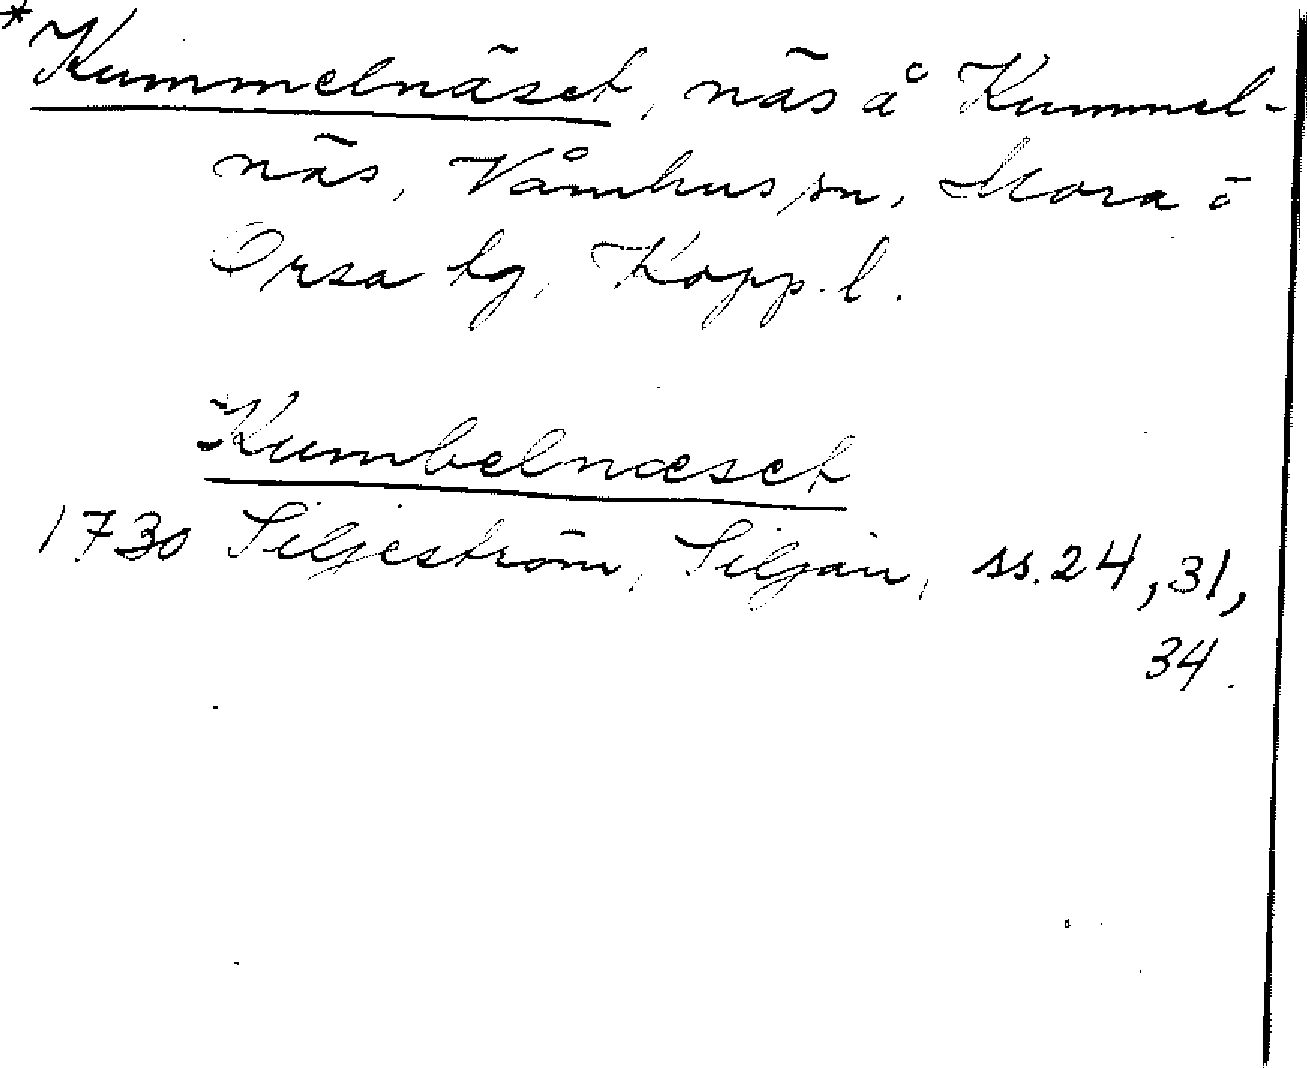 *Kummelnäset, näs å Kummel-
näs, Våmhus sn, Mora o
Orsa tg, Kopp. l.
Kumbelnæset
1730 Siljeström, Siljan, ss. 24, 31,
34.